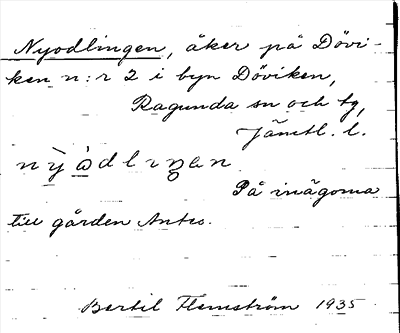 Nyodlingen, åker på Dövi-
ken n:r 2 i byn Döviken,
Ragunda sn och tg,
Jämtl. l.
nỳȯdlıŋen
På inägorna
till gården Antes.
Bertil Flemström 1935